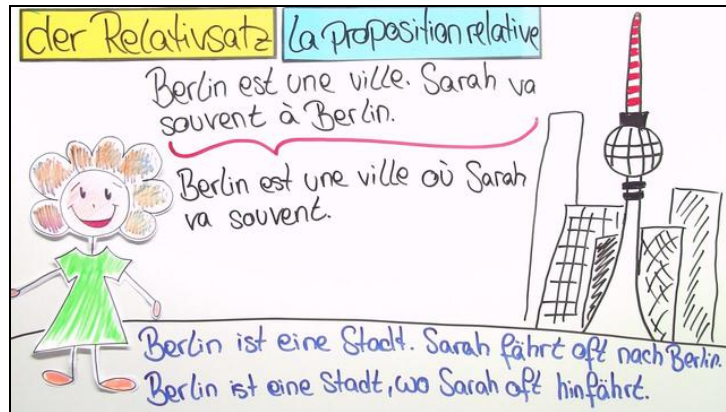 der Relativsatz
la proposition relative
Berlin est une ville. Sarah va
souvent à Berlin.
Berlin est une ville où Sarah
va souvent.
Berlin ist eine Stadt. Sarah fährt oft nach Berlin.
Berlin ist eine Stadt, wo Sarah oft hinfährt.